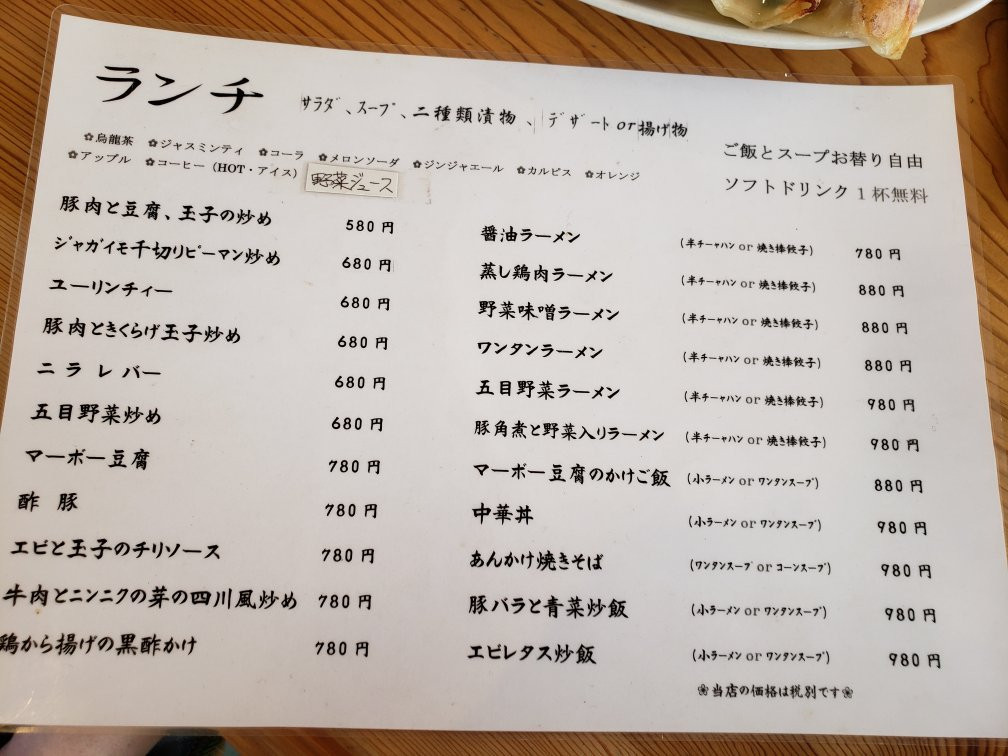 ランチ
サラダ、スープ、二種類漬物、デザートor揚げ物
✿烏龍茶 ✿ジャスミンティ ✿コーラ ✿メロンソーダ ✿ジンジャエール ✿カルピス ✿オレンジ
✿アップル ✿コーヒー（HOT・アイス） 野菜ジュース
ご飯とスープお替り自由
ソフトドリンク1杯無料
豚肉と豆腐、玉子の炒め 580円
ジャガイモ千切りピーマン炒め 680円
ユーリンチィー 680円
豚肉ときくらげ玉子炒め 680円
ニラレバー 680円
五目野菜炒め 680円
マーボー豆腐 780円
酢豚 780円
エビと玉子のチリソース 780円
牛肉とニンニクの芽の四川風炒め 780円
鶏から揚げの黒酢かけ 780円
醤油ラーメン (半チャーハン or 焼き棒餃子) 780円
蒸し鶏肉ラーメン (半チャーハン or 焼き棒餃子) 880円
野菜味噌ラーメン (半チャーハン or 焼き棒餃子) 880円
ワンタンラーメン (半チャーハン or 焼き棒餃子) 880円
五目野菜ラーメン (半チャーハン or 焼き棒餃子) 980円
豚角煮と野菜入りラーメン (半チャーハン or 焼き棒餃子) 980円
マーボー豆腐のかけご飯 (小ラーメン or ワンタンスープ) 880円
中華丼 (小ラーメン or ワンタンスープ) 980円
あんかけ焼きそば (ワンタンスープ or コーンスープ) 980円
豚バラと青菜炒飯 (小ラーメン or ワンタンスープ) 980円
エビレタス炒飯 (小ラーメン or ワンタンスープ) 980円
❀当店の価格は税別です❀